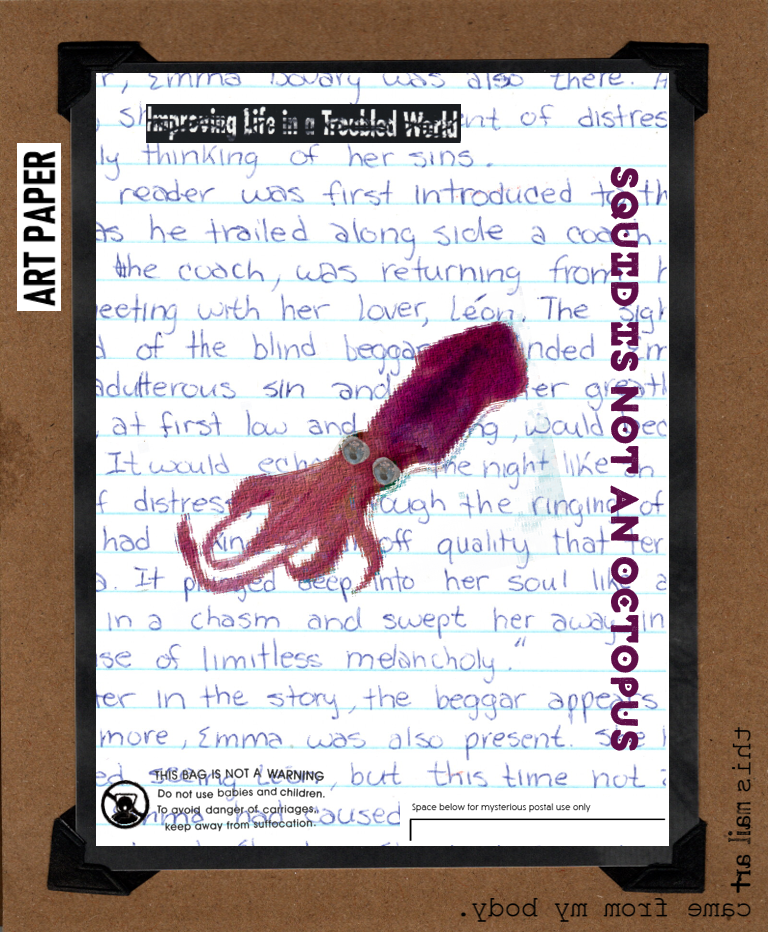 r, Emma Bovary was also there.
Improving Life in a Troubled World
nt of distres
ly thinking of her sins.
reader was first introduced to th
as he trailed along side a coach.
the coach, was returning from h
eeting with her lover, Léon. The sigh
d of the blind beggar nded Em
adulterous sin and er greath
, at first low and ng, would bec
It would echo the night like an
f distress, ough the ringing of
had kin off quality that ter
a. It plunged deep into her soul like a
in a chasm and swept her away in
se of limitless melancholy."
ter in the story, the beggar appears
more, Emma was also present. She h
ed seeing Léon, but this time not a
Emma had caused
ART PAPER
SQUID IS NOT AN OCTOPUS
THIS BAG IS NOT A WARNING
Do not use babies and children.
To avoid danger of carriages,
keep away from suffocation.
Space below for mysterious postal use only
this mail art
came from my body.